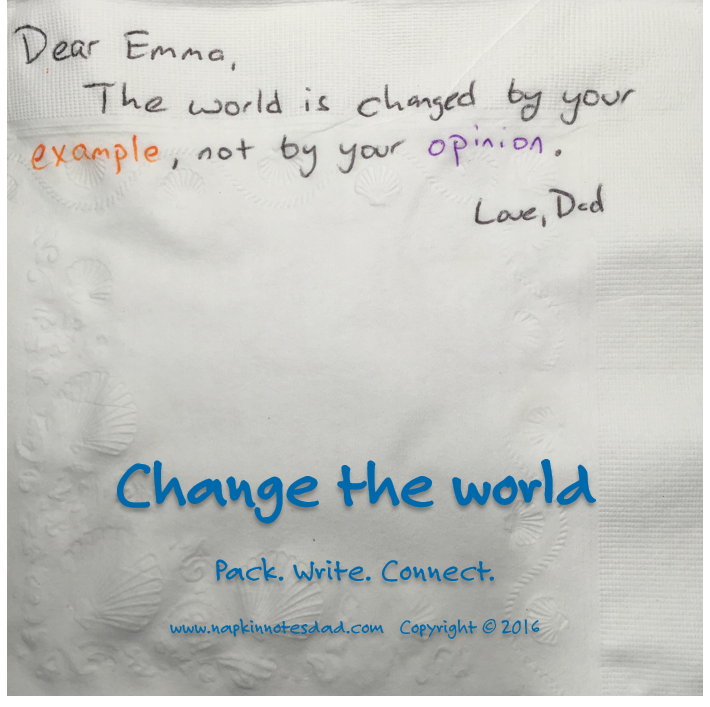 Dear Emma,
The world is changed by your
example, not by your opinion.
Love, Dad
Change the world
Pack. Write. Connect.
www.napkinnotesdad.com Copyright © 2016